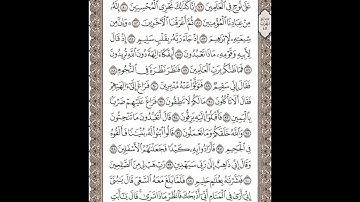 عَلَىٰ نُوحٍ فِي ٱلْعَٰلَمِينَ إِنَّا كَذَٰلِكَ نَجْزِي ٱلْمُحْسِنِينَ إِنَّهُۥ
مِنْ عِبَادِنَا ٱلْمُؤْمِنِينَ ثُمَّ أَغْرَقْنَا ٱلْأَخَرِينَ وَإِنَّ مِن
شِيعَتِهِۦ لَإِبْرَٰهِيمَ إِذْ جَآءَ رَبَّهُۥ بِقَلْبٍ سَلِيمٍ إِذْ قَالَ
لِأَبِيهِ وَقَوْمِهِۦ مَاذَا تَعْبُدُونَ أَئِفْكًا ءَالِهَةً دُونَ ٱللَّهِ تُرِيدُونَ
فَمَا ظَنُّكُم بِرَبِّ ٱلْعَٰلَمِينَ فَنَظَرَ نَظْرَةً فِي ٱلنُّجُومِ
فَقَالَ إِنِّي سَقِيمٌ فَتَوَلَّوْا۟ عَنْهُ مُدْبِرِينَ فَرَاغَ إِلَىٰٓ ءَالِهَتِهِمْ
فَقَالَ أَلَا تَأْكُلُونَ مَا لَكُمْ لَا تَنطِقُونَ فَرَاغَ عَلَيْهِمْ ضَرْبًۢا
بِٱلْيَمِينِ فَأَقْبَلُوٓا۟ إِلَيْهِ يَزِفُّونَ قَالَ أَتَعْبُدُونَ مَا تَنْحِتُونَ
وَٱللَّهُ خَلَقَكُمْ وَمَا تَعْمَلُونَ قَالُوا۟ ٱبْنُوا۟ لَهُۥ بُنْيَٰنًا فَأَلْقُوهُ
فِي ٱلْجَحِيمِ فَأَرَادُوا۟ بِهِۦ كَيْدًا فَجَعَلْنَٰهُمُ ٱلْأَسْفَلِينَ
وَقَالَ إِنِّي ذَاهِبٌ إِلَىٰ رَبِّي سَيَهْدِينِ رَبِّ هَبْ لِي مِنَ ٱلصَّٰلِحِينَ
فَبَشَّرْنَٰهُ بِغُلَٰمٍ حَلِيمٍ فَلَمَّا بَلَغَ مَعَهُ ٱلسَّعْيَ قَالَ يَٰبُنَيَّ
إِنِّيٓ أَرَىٰ فِي ٱلْمَنَامِ أَنِّيٓ أَذْبَحُكَ فَٱنظُرْ مَاذَا تَرَىٰ قَالَ يَٰٓأَبَتِ